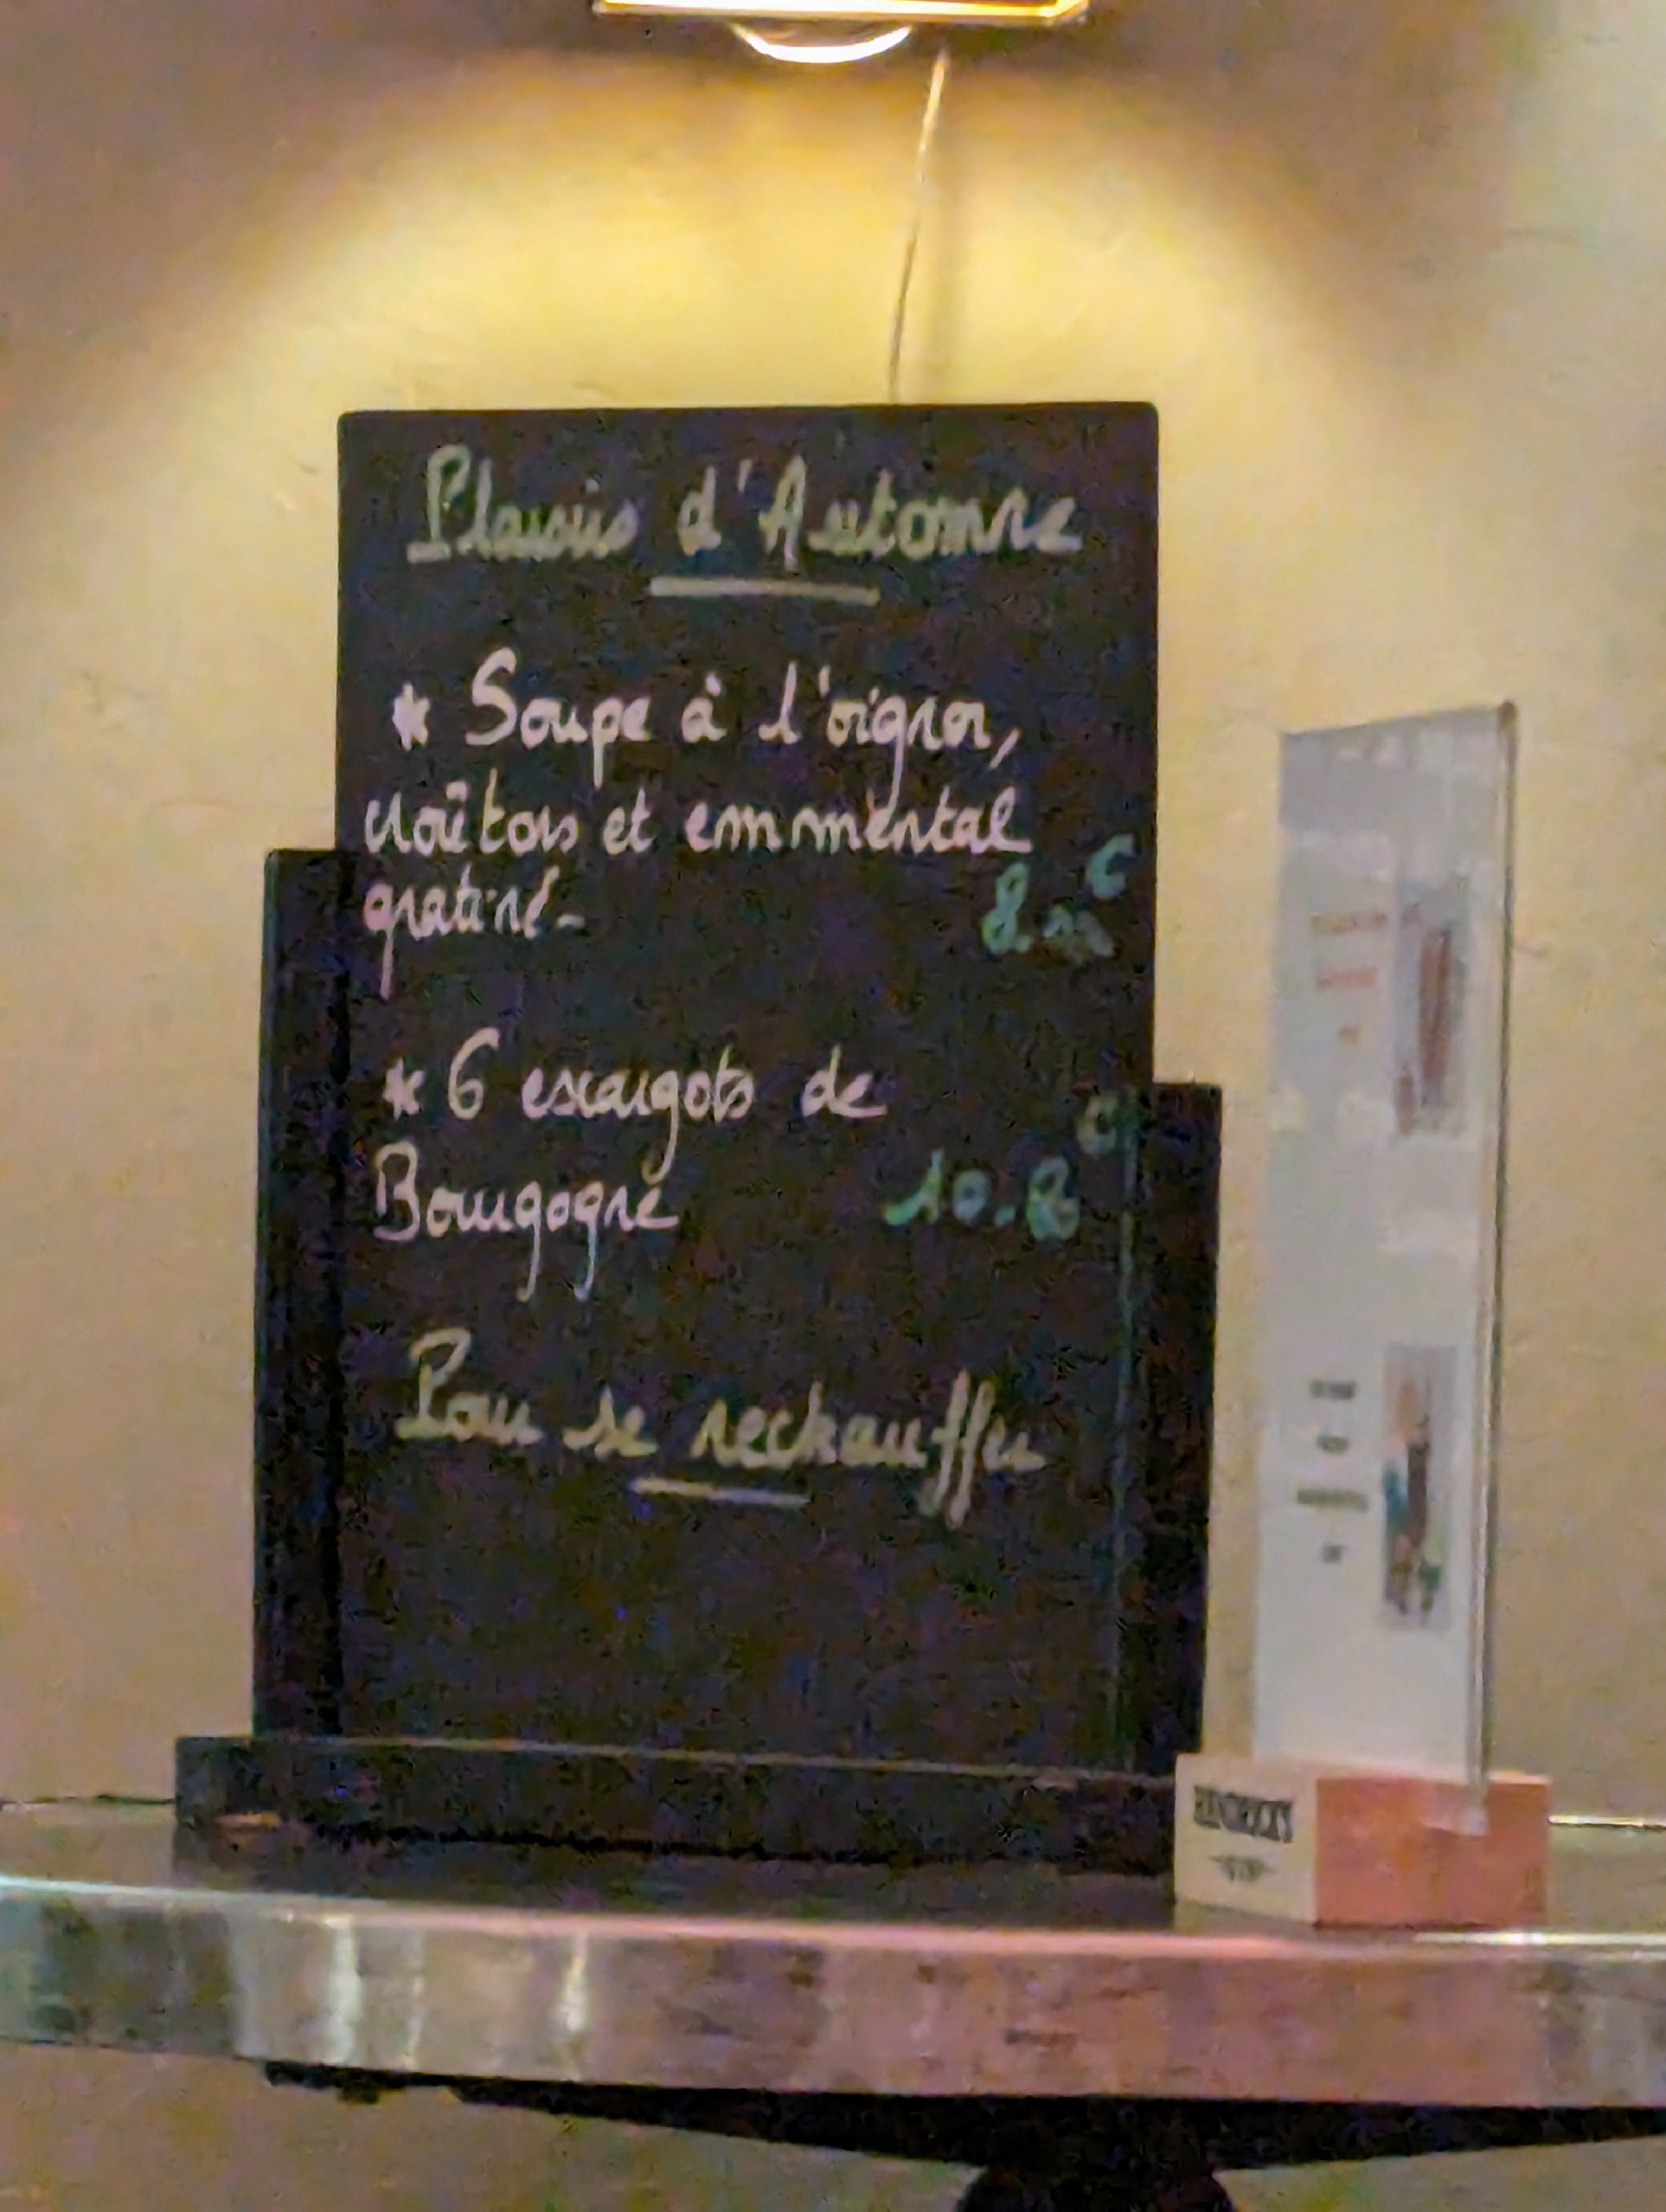 Plaisirs d'Automne
* Soupe à l'oignon,
croûtons et emmental
gratiné-
* 6 escargots de
Bourgogne
Pour se rechauffer
HENDRICK'S
GIN